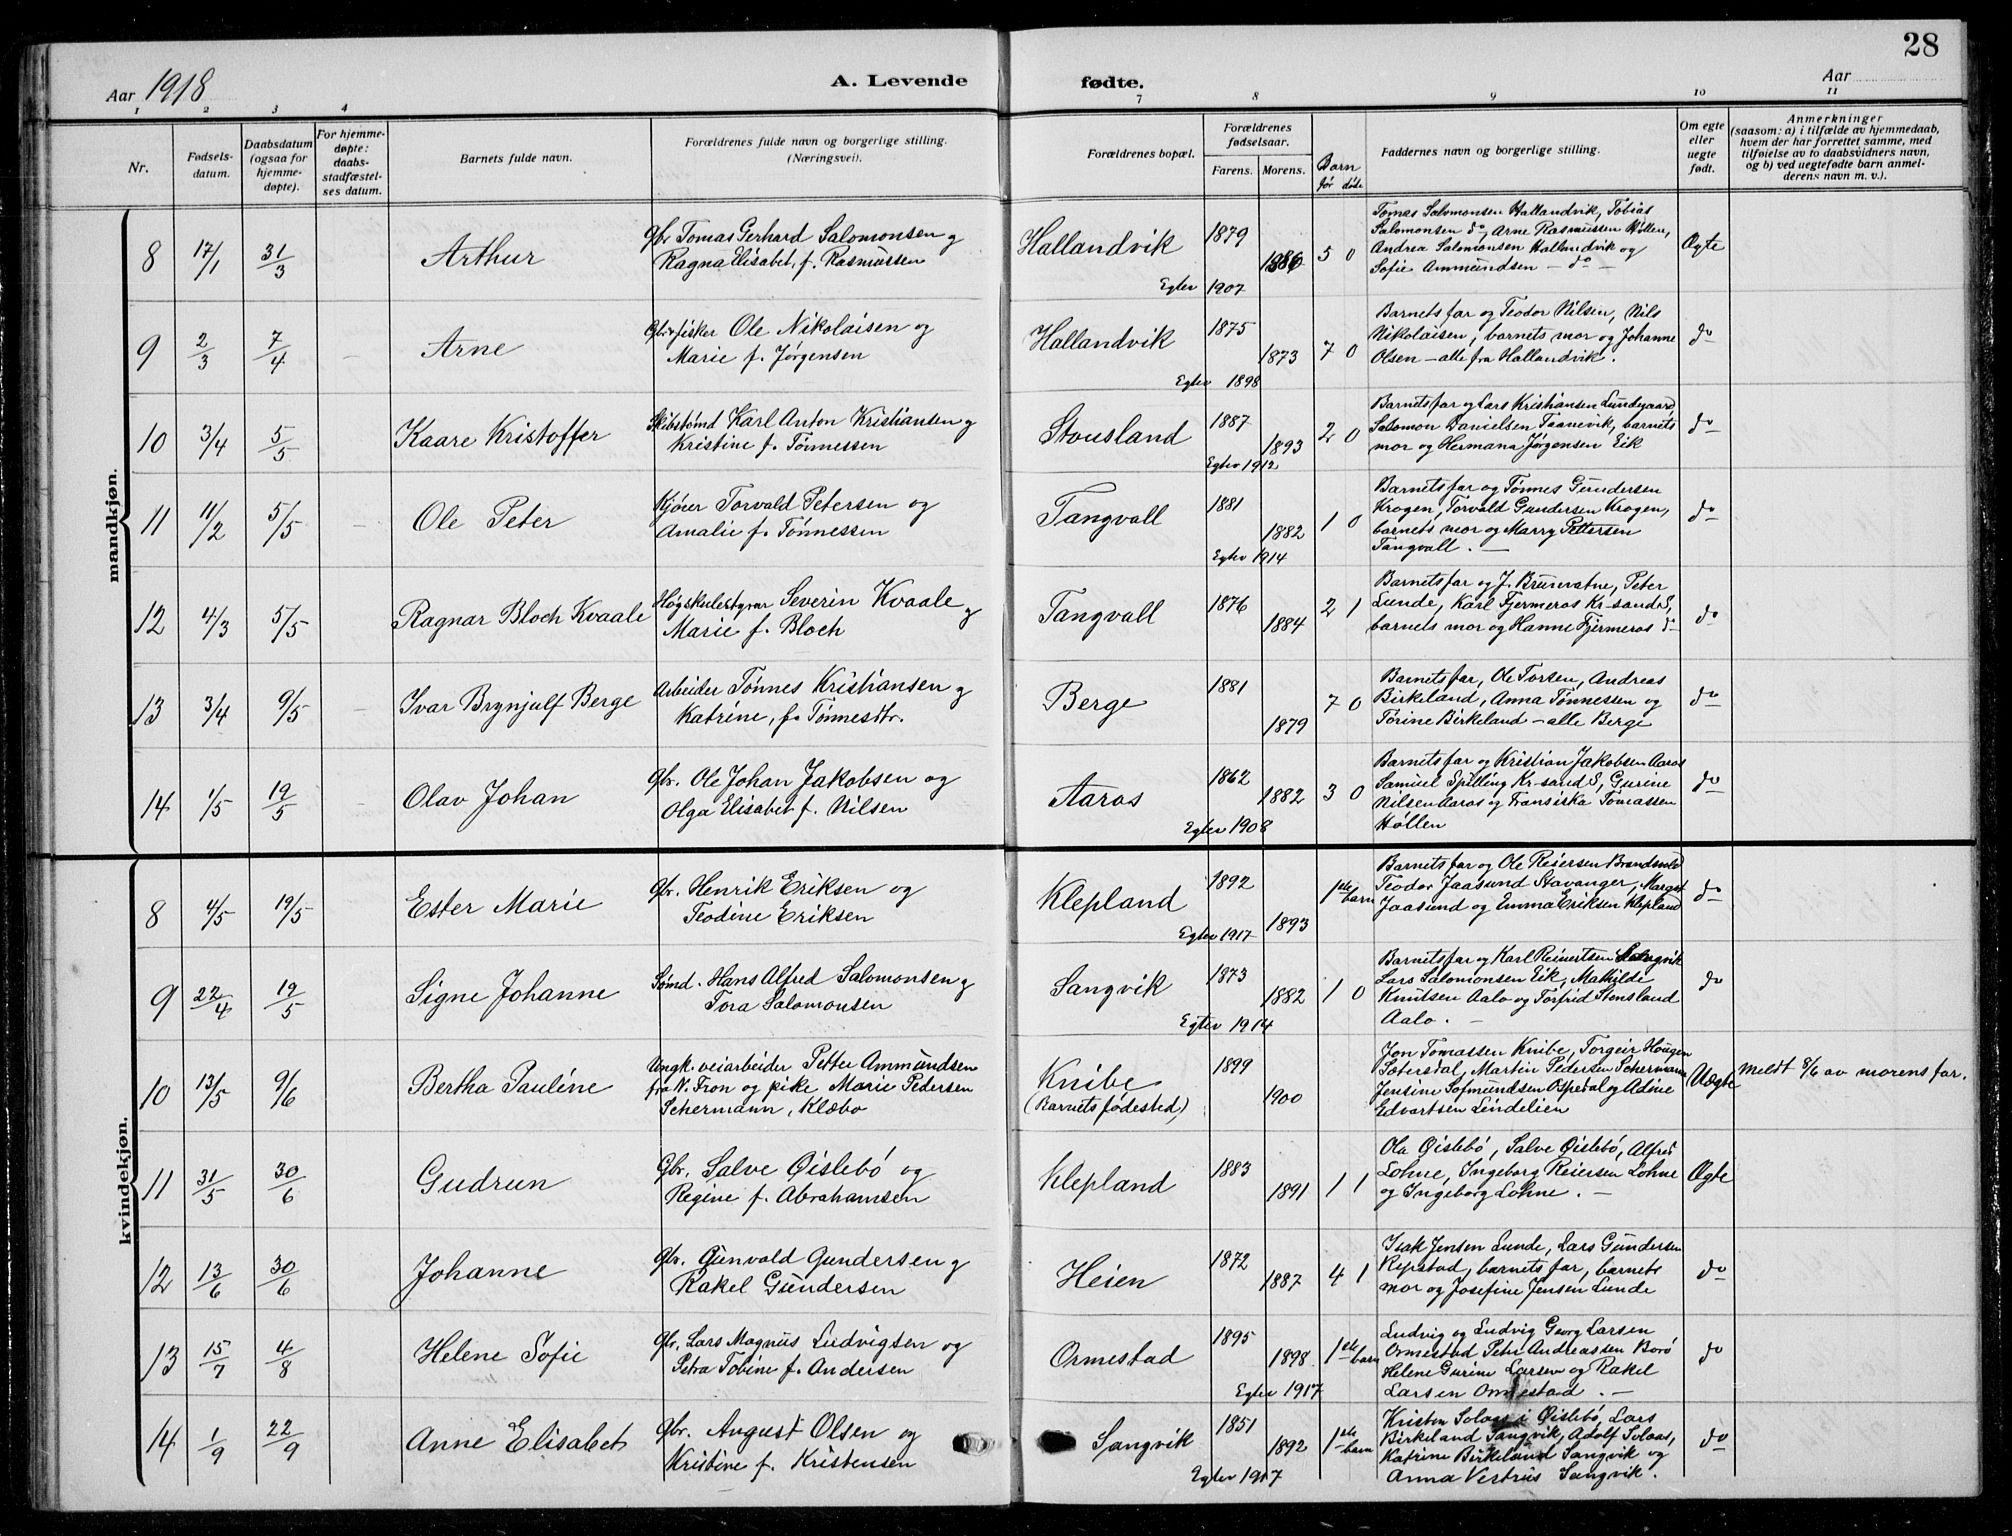 28
Aar 1918
A. Levende fødte.
Aar
1 2 3 4 7 8 9 10 11
Nr.
Fødsels-
datum.
Daabsdatum
(ogsaa for
hjemme-
døpte).
For hjemme-
døpte:
daabs-
stadfæstel-
ses datum.
Barnets fulde navn.
Forældrenes fulde navn og borgerlige stilling.
(Næringsvei).
Forældrenes bopæl.
Forældrenes
fødselsaar.
Farens. Morens.
Barn
før døde
Faddernes navn og borgerlige stilling.
Om egte
eller
uegte
født.
Anmerkninger
(saasom: a) i tilfælde av hjemmedaab,
hvem der har forrettet samme, med
tilføielse av to daabsvidners navn,
og b) ved uegtefødte barn anmel-
derens navn m. v.).
mandkjøn.
8 17/1 31/3 Arthur
Gbr Tomas Gerhard Salomonsen og
Ragna Elisabet, f. Rasmussen
Hallandvik 1879 1886 5 0
Egtev 1907
Tomas Salomonsen Hallandvik, Tobias
Salomonsen do, Arne Rasmussen Høllen,
Andrea Salomonsen Hallandvik og
Sofie Ammundsen – do –
Ægte
9 2/3 7/4 Arne
Gbr fisker Ole Nikolaisen og
Marie f. Jørgensen
Hallandvik 1875 1873 7 0
Egtev 1898
Barnets far og Teodor Nilsen, Nils
Nikolaisen, barnets mor og Johanne
Olsen – alle fra Hallandvik.
do
10 3/4 5/5 Kaare Kristoffer
Skibstømd Karl Anton Kristiansen og
Kristine f. Tønnessen
Stousland 1887 1893 2 0
Egtev 1912
Barnets far og Lars Kristiansen Lundegaard,
Salomon Danielsen Taanevik, barnets
mor og Hermana Jørgensen Eik
do
11 11/2 5/5 Ole Peter
Kjører Torvald Petersen og
Amalie f. Tønnessen
Tangvall 1881 1882 1 0
Egtev 1914
Barnets far og Tønnes Gundersen
Krogen, Torvald Gundersen Krogen,
barnets mor og Marry Pettersen
Tangvall. –
do
12 4/3 5/5 Ragnar Bloch Kvaale
Høgskulestyrar Severin Kvaale og
Marie f. Bloch
Tangvall 1876 1884 2 1
Barnets far og J. Brunvatne, Peter
Lunde, Karl Fjermeros Kr-sand S,
barnets mor og Hanne Fjermeros do
do
13 3/4 9/5 Ivar Brynjulf Berge
Arbeider Tønnes Kristiansen og
Katrine, f. Tønnesdtr.
Berge 1881 1879 7 0
Barnets far, Ole Torsen, Andreas
Birkeland, Anna Tønnessen og
Torine Birkeland – alle Berge
do
14 1/5 19/5 Olav Johan
Gbr. Ole Johan Jakobsen og
Olga Elisabet f. Nilsen
Aaros 1862 1882 3 0
Egtev 1908
Barnets far og Kristian Jakobsen Aaros
Samuel Spilling Kr-sand S, Gurine
Nilsen Aaros og Fransiska Tomassen
Høllen
do
kvindekjøn.
8 4/5 19/5 Ester Marie
Gbr. Henrik Eriksen og
Teodine Eriksen
Klepland 1892 1893 1ste barn
Egtev 1917
Barnets far og Ole Reiersen
Teodor Jaasund Stavanger, Margit
Jaasund og Emma Eriksen Klepland
do
9 22/4 19/5 Signe Johanne
Sømd. Hans Alfred Salomonsen og
Tora Salomonsen
Sangvik 1873 1882 1 0
Egtev 1914
Barnets far og Karl Reinertsen Sangvik
Lars Salomonsen Eik, Mathilde
Knutsen Aalo og Torfrid Stensland
Aalo. –
do
10 13/5 9/6 Bertha Pauline
Ungk. veiarbeider Petter Ammundsen
fra N. Fron og pike Marie Pedersen
Schermann, Klæbo
Knibe
(Barnets fødested)
1899 1900
Jon Tomassen Knibe, Torgeir Hougen
Sætersdal, Martin Pedersen Schermann
Jensine Sofmundsen Ospedal og Adine
Edvartsen Lindelien
Uægte
Meldt 8/6 av morens far.
11 31/5 30/6 Gudrun
Gbr. Salve Øislebø og
Regine f. Abrahamsen
Klepland 1883 1891 1 1
Ola Øislebø, Salve Øislebø, Alfred
Lohne, Ingeborg Reiersen Lohne
og Ingeborg Lohne. –
Ægte
12 13/6 30/6 Johanne
Gbr. Gunvald Gundersen og
Rakel Gundersen
Heien 1872 1887 4 1
Isak Jensen Lunde, Lars Gundersen
Repstad, barnets far, barnets
mor og Josefine Jensen Lunde
do
13 15/7 4/8 Helene Sofie
Gbr. Lars Magnus Ludvigsen og
Petra Tobine f. Andersen
Ormestad 1895 1898 1ste barn
Egtev 1917
Ludvig og Ludvig Georg Larsen
Ormestad Petr Andreassen Borø
Helene Gurine Larsen og Rakel
Larsen Ormestad. –
do
14 1/9 22/9 Anne Elisabet
Gbr. August Olsen og
Kristine f. Kristensen
Sangvik 1851 1892 1ste barn
Egtev 1917
Kristen Solaas i Øislebø, Lars
Birkeland Sangvik, Adolf Solaas,
Katrine Birkeland Sangvik og
Anna Sangvik.
do